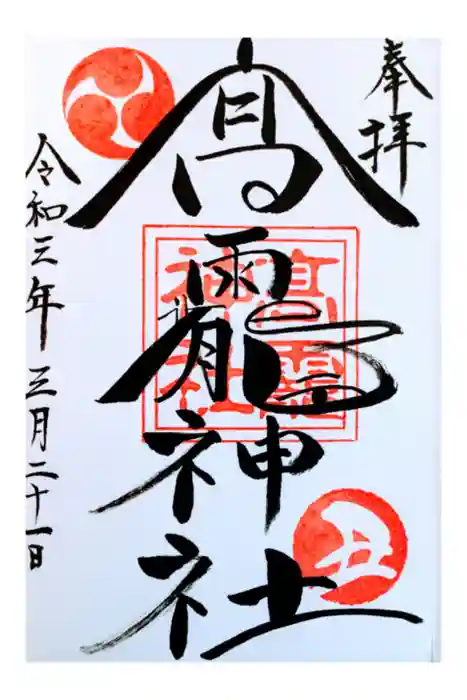 奉拝
高龗神社
令和三年三月二十一日
高龗
神社
丑